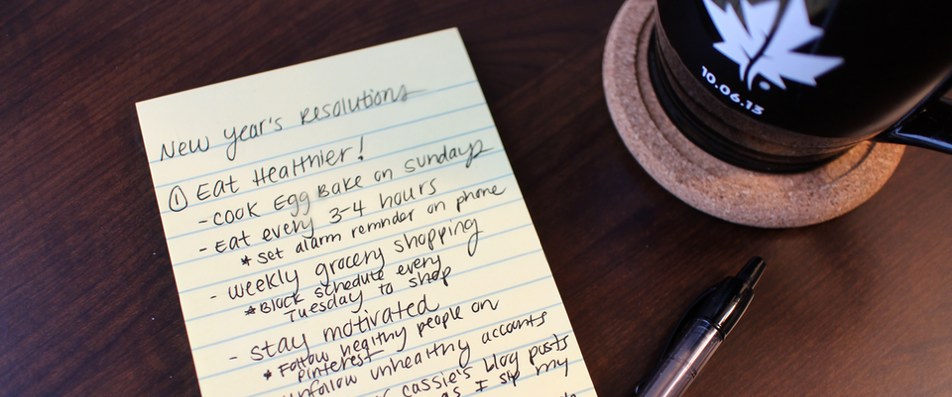 New year's resolutions
① Eat Healthier!
- cook Egg Bake on Sundays
- Eat every 3-4 hours
* Set alarm reminder on phone
- weekly grocery shopping
* Block schedule every
Tuesday to shop
- stay motivated
* Follow healthy people on
pinterest
unfollow unhealthy accounts
cassie's blog posts
as I sip my
10.06.13